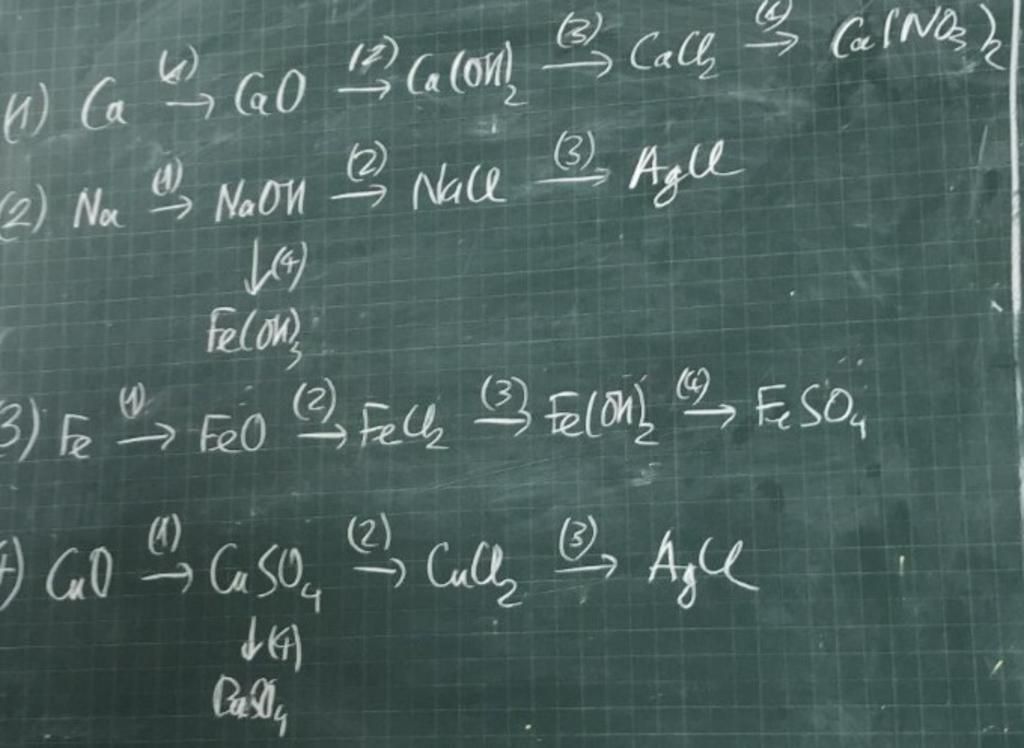 (1) Ca (1)→ CaO (2)→ Ca(OH)2 (3)→ CaCl2 (4)→ Ca(NO3)2
(2) Na (1)→ NaOH (2)→ NaCl (3)→ AgCl
↓(4)
Fe(OH)3
3) Fe (1)→ FeO (2)→ FeCl2 (3)→ Fe(OH)2 (4)→ FeSO4
) CuO (1)→ CuSO4 (2)→ CuCl2 (3)→ AgCl
↓(4)
BaSO4